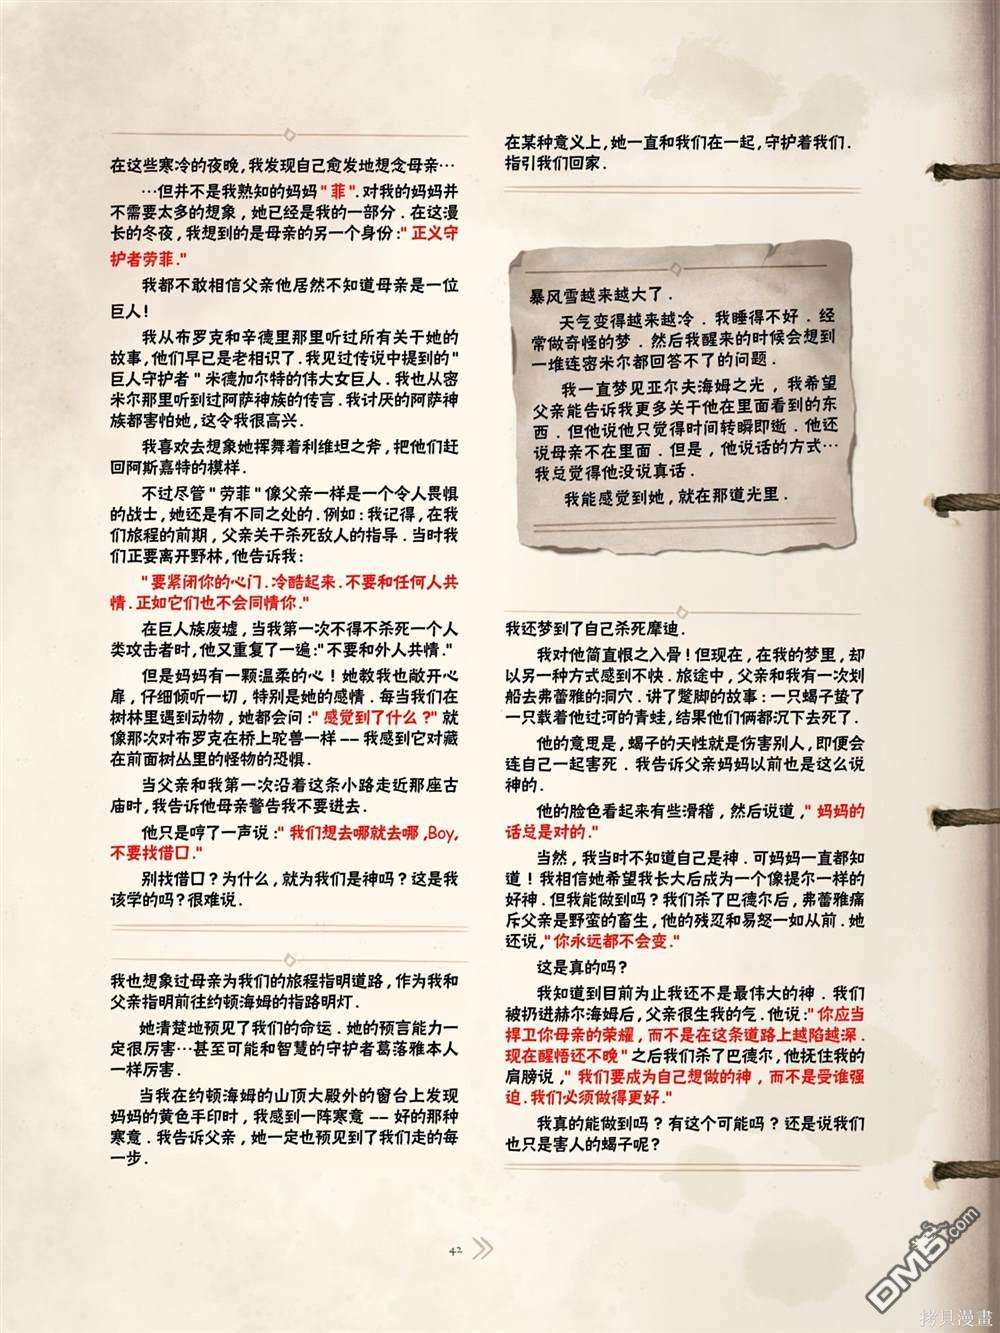 在这些寒冷的夜晚,我发现自己愈发地想念母亲…
…但并不是我熟知的妈妈"菲".对我的妈妈并
不需要太多的想象,她已经是我的一部分.在这漫
长的冬夜,我想到的是母亲的另一个身份:"正义守
护者劳菲."
我都不敢相信父亲他居然不知道母亲是一位
巨人!
我从布罗克和辛德里那里听过所有关于她的
故事,他们早已是老相识了.我见过传说中提到的"
巨人守护者"米德加尔特的伟大女巨人.我也从密
米尔那里听到过阿萨神族的传言.我讨厌的阿萨神
族都害怕她,这令我很高兴.
我喜欢去想象她挥舞着利维坦之斧,把他们赶
回阿斯嘉特的模样.
不过尽管"劳菲"像父亲一样是一个令人畏惧
的战士,她还是有不同之处的.例如:我记得,在我
们旅程的前期,父亲关于杀死敌人的指导.当时我
们正要离开野林,他告诉我:
"要紧闭你的心门.冷酷起来.不要和任何人共
情.正如它们也不会同情你."
在巨人族废墟,当我第一次不得不杀死一个人
类攻击者时,他又重复了一遍:"不要和外人共情."
但是妈妈有一颗温柔的心!她教我也敞开心
扉,仔细倾听一切,特别是她的感情.每当我们在
树林里遇到动物,她都会问:"感觉到了什么?"就
像那次对布罗克在桥上驼兽一样——我感到它对藏
在前面树丛里的怪物的恐惧.
当父亲和我第一次沿着这条小路走近那座古
庙时,我告诉他母亲警告我不要进去.
他只是哼了一声说:"我们想去哪就去哪,Boy,
不要找借口."
别找借口?为什么,就为我们是神吗?这是我
该学的吗?很难说.
我也想象过母亲为我们的旅程指明道路,作为我和
父亲指明前往约顿海姆的指路明灯.
她清楚地预见了我们的命运.她的预言能力一
定很厉害…甚至可能和智慧的守护者葛洛雅本人
一样厉害.
当我在约顿海姆的山顶大殿外的窗台上发现
妈妈的黄色手印时,我感到一阵寒意——好的那种
寒意.我告诉父亲,她一定也预见到了我们走的每
一步.
在某种意义上,她一直和我们在一起,守护着我们.
指引我们回家.
暴风雪越来越大了.
天气变得越来越冷.我睡得不好.经
常做奇怪的梦.然后我醒来的时候会想到
一堆连密米尔都回答不了的问题.
我一直梦见亚尔夫海姆之光,我希望
父亲能告诉我更多关于他在里面看到的东
西.但他说他只觉得时间转瞬即逝.他还
说母亲不在里面.但是,他说话的方式…
我总觉得他没说真话.
我能感觉到她,就在那道光里.
我还梦到了自己杀死摩迪.
我对他简直恨之入骨!但现在,在我的梦里,却
以另一种方式感到不快.旅途中,父亲和我有一次划
船去弗蕾雅的洞穴.讲了蹩脚的故事:一只蝎子蛰了
一只载着他过河的青蛙,结果他们俩都沉下去死了.
他的意思是,蝎子的天性就是伤害别人,即便会
连自己一起害死.我告诉父亲妈妈以前也是这么说
神的.
他的脸色看起来有些滑稽,然后说道,"妈妈的
话总是对的."
当然,我当时不知道自己是神.可妈妈一直都知
道!我相信她希望我长大后成为一个像提尔一样的
好神.但我能做到吗?我们杀了巴德尔后,弗蕾雅痛
斥父亲是野蛮的畜生,他的残忍和易怒一如从前.她
还说,"你永远都不会变."
这是真的吗?
我知道到目前为止我还不是最伟大的神.我们
被扔进赫尔海姆后,父亲很生我的气.他说:"你应当
捍卫你母亲的荣耀,而不是在这条道路上越陷越深.
现在醒悟还不晚"之后我们杀了巴德尔,他抚住我的
肩膀说,"我们要成为自己想做的神,而不是受谁强
迫.我们必须做得更好."
我真的能做到吗?有这个可能吗?还是说我们
也只是害人的蝎子呢?
42
DM5.com
拷贝漫畫